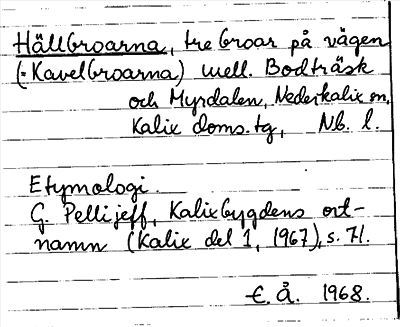 Hällbroarna, tre broar på vägen
(= Kavelbroarna) mell. Bodträsk
och Myrdalen, Nederkalix sn,
Kalix doms.tg, Nb. l.
Etymologi.
G. Pellijeff, Kalixbygdens ort-
namn (Kalix del 1, 1967), s. 71.
E. Å. 1968.